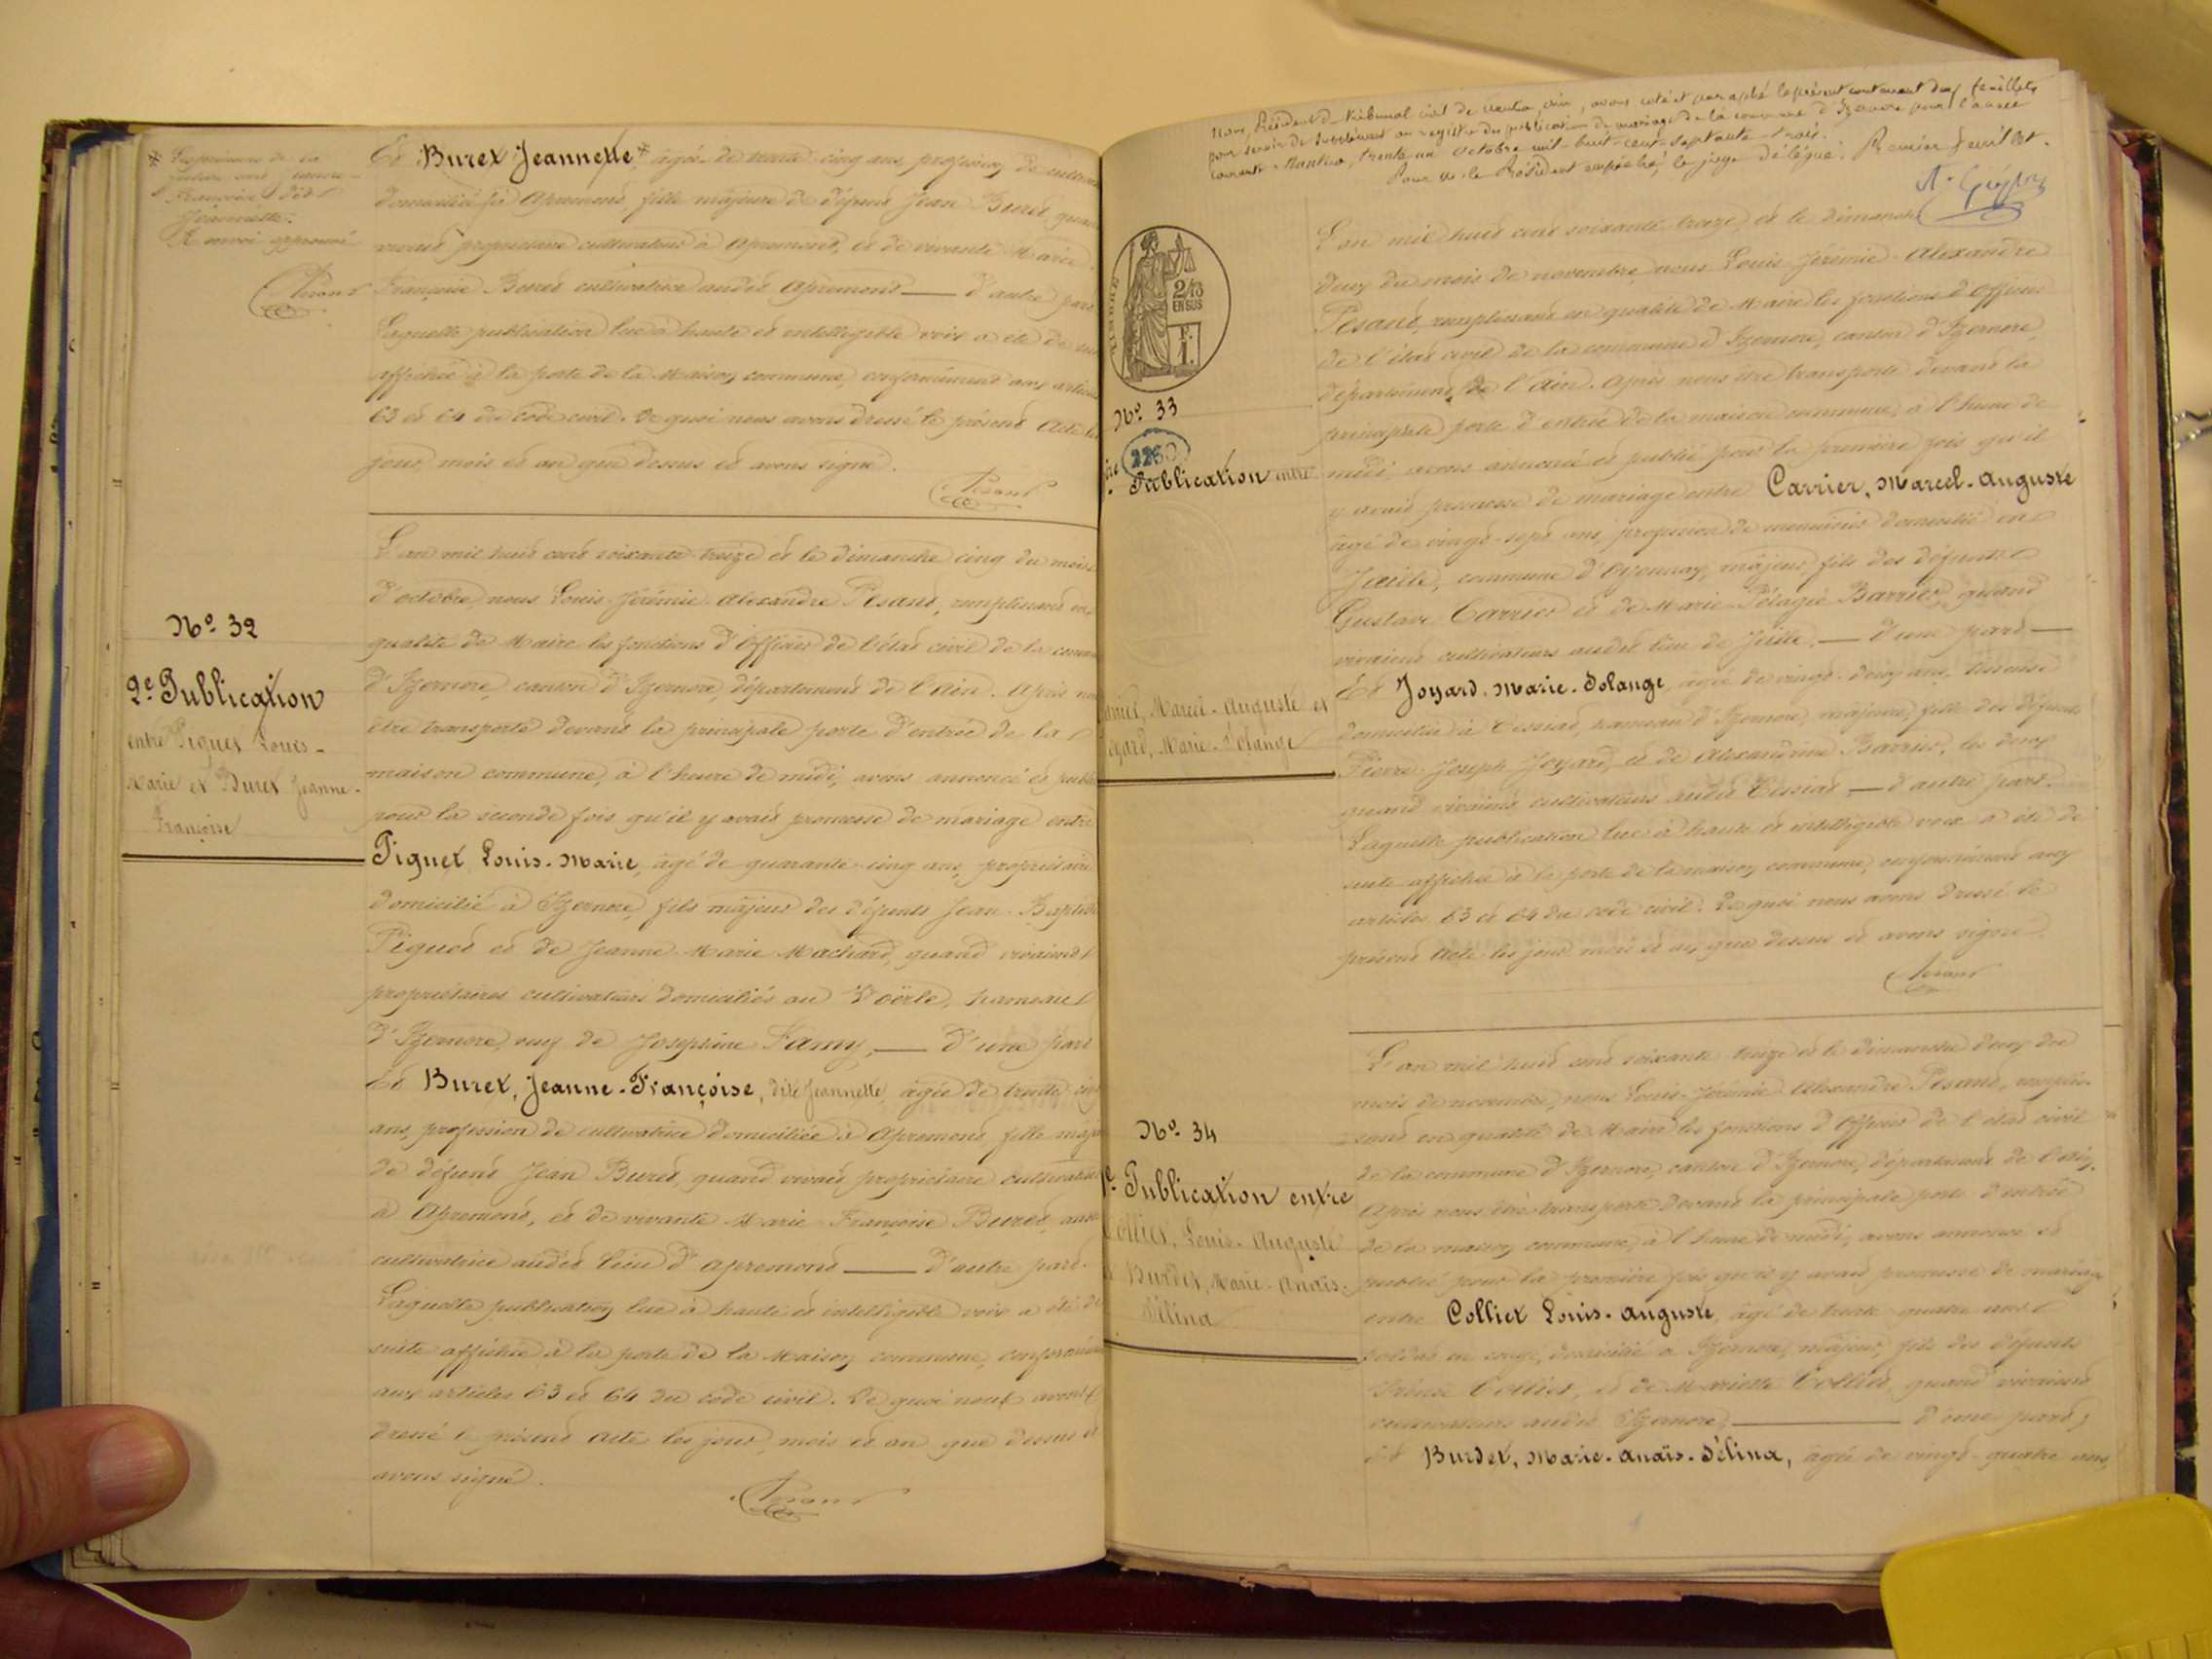 * L'expression de la
future est Jeanne
Françoise dite
Jeannette.
Renvoi approuvé
Pesant
Et Buret Jeannette* âgée de trente cinq ans, profession de
domiciliée à Apremont, fille majeure de défunt Jean Buret quand
vivait propriétaire cultivateur à Apremont, et de vivante Marie
Françoise Buret cultivatrice audit Apremont — d'autre part
Laquelle publication lue à haute et intelligible voix a été de
affichée à la porte de la Maison commune, conformément aux articles
63 et 64 du code civil. De quoi nous avons dressé le présent Acte les
jour, mois et an que dessus et avons signé.
Pesant
No. 32
2e Publication
entre Piquet Louis-
Marie et Buret Jeanne-
Françoise
L'an mil huit cent soixante-treize et le dimanche cinq du mois
d'octobre, nous Louis-Jérémie-Alexandre Pesant, remplissant en
qualité de Maire les fonctions d'Officier de l'état civil de la
d'Izernore, canton d'Izernore, département de l'Ain. Après
être transporté devant la principale porte d'entrée de la
maison commune, à l'heure de midi, avons annoncé et
pour la seconde fois qu'il y avait promesse de mariage entre
Piquet Louis-Marie, âgé de quarante-cinq ans, propriétaire
domicilié à Izernore, fils majeur des défunts Jean-Baptiste
Piquet et de Jeanne-Marie Machard, quand vivaient
propriétaires cultivateurs domiciliés au Voërle, hameau
d'Izernore, veuf de Josephine Famy, — d'une part
Et Buret, Jeanne-Françoise, dite Jeannette, âgée de trente cinq
ans, profession de cultivatrice domiciliée à Apremont fille
de défunt Jean Buret, quand vivait propriétaire cultivateur
à Apremont, et de vivante Marie Françoise Buret,
cultivatrice audit lieu d'Apremont — d'autre part.
Laquelle publication lue à haute et intelligible voix a été de
suite affichée à la porte de la Maison commune,
aux articles 63 et 64 du code civil. De quoi nous avons
dressé le présent Acte les jour, mois et an que dessus et
avons signé.
Pesant
Nous, Président du tribunal civil de Nantua, Ain, avons coté et paraphé le présent contenant deux feuillets
pour servir de supplément au registre des publications de mariage de la commune d'Izernore pour l'année
courante. Nantua, trente-un octobre mil-huit-cent-septante-trois.
Pour M. le Président empêché, le juge délégué. Premier feuillet.
TIMBRE
2/10
EN SUS
F.
1.
No. 33
2280
Publication entre
Carrier, Marcel-Auguste et
Joyard, Marie-Solange
L'an mil huit cent soixante-treize, et le dimanche
deux du mois de novembre, nous Louis-Jérémie-Alexandre
Pesant, remplissant en qualité de Maire les fonctions d'Officier
de l'état civil de la commune d'Izernore, canton d'Izernore,
département de l'Ain. Après nous être transporté devant la
principale porte d'entrée de la maison commune, à l'heure de
midi, avons annoncé et publié pour la première fois qu'il
y avait promesse de mariage entre Carrier, Marcel-Auguste
âgé de vingt-sept ans, profession de menuisier domicilié en
commune d'Oyonnax, majeur, fils des défunts
Gustave Carrier et de Marie-Pélagie Barrier, quand
vivaient cultivateurs audit lieu de — d'une part —
Et Joyard, Marie-Solange, âgée de vingt-deux ans,
domiciliée à Tessiat, hameau d'Izernore, majeure, fille des défunts
Pierre-Joseph Joyard, et de Alexandrine Barrier, les deux
quand vivaient cultivateurs audit Tessiat, — d'autre part.
Laquelle publication lue à haute et intelligible voix a été de
suite affichée à la porte de la maison commune, conformément aux
articles 63 et 64 du code civil. De quoi nous avons dressé le
présent Acte les jour mois et an que dessus et avons signé.
Pesant
No. 34
1e Publication entre
Colliet, Louis-Auguste
et Burdet, Marie-Anaïs-
Sélina
L'an mil huit cent soixante-treize et le dimanche deux du
mois de novembre, nous Louis-Jérémie-Alexandre Pesant, remplis-
sant en qualité de Maire les fonctions d'Officier de l'état civil
de la commune d'Izernore, canton d'Izernore, département de l'Ain.
Après nous être transporté devant la principale porte d'entrée
de la maison commune, à l'heure de midi, avons annoncé et
publié pour la première fois qu'il y avait promesse de mariage
entre Colliet Louis-Auguste, âgé de trente-quatre ans
soldat en congé, domicilié à Izernore, majeur, fils des défunts
Colliet, et de Mariette Colliet, quand vivaient
cultivateurs audit Izernore, — d'une part,
Et Burdet, Marie-Anaïs-Sélina, âgée de vingt-quatre ans,